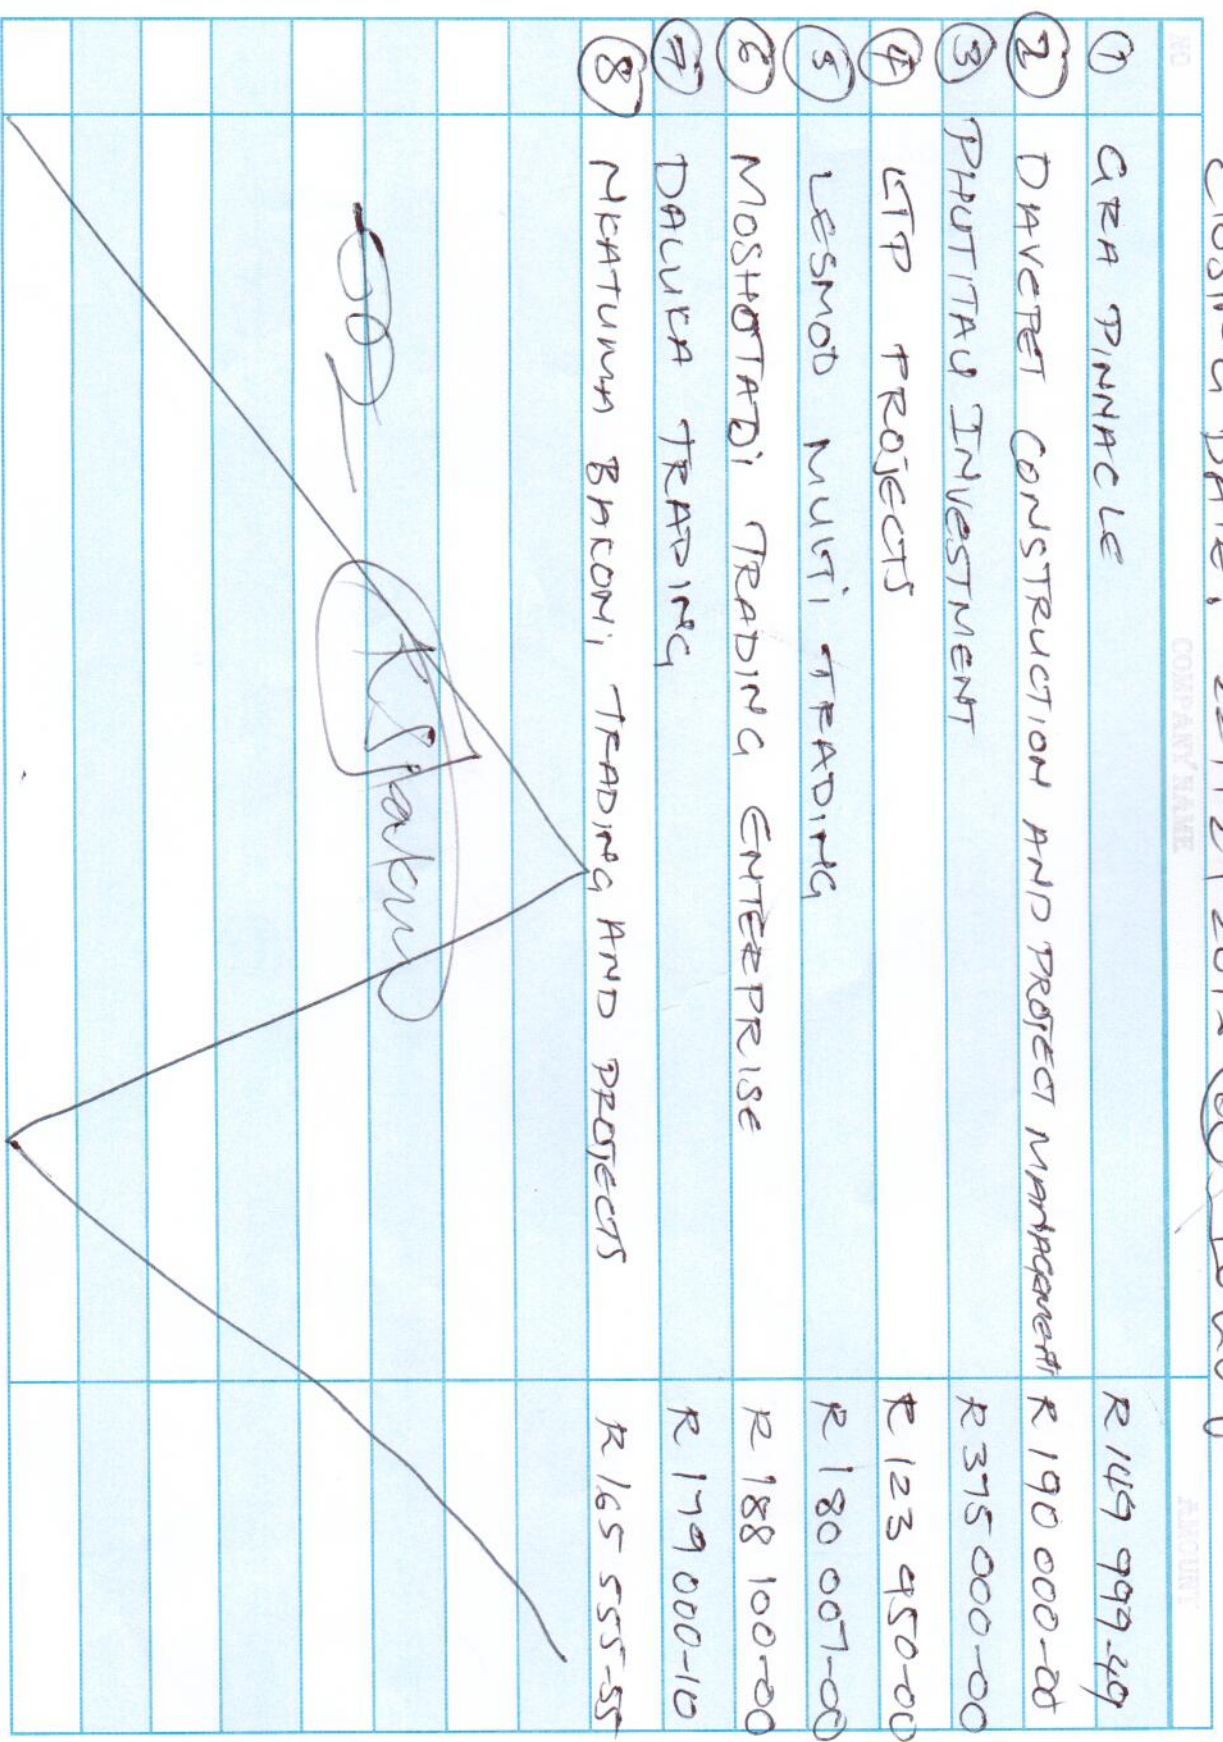 CLOSING DATE:
NO COMPANY NAME AMOUNT
1 GRA PINNACLE R 149 999-49
2 DAVEPET CONSTRUCTION AND PROJECT MANAGEMENT R 190 000-00
3 PHUTITAU INVESTMENT R 375 000-00
4 LTP PROJECTS R 123 450-00
5 LESMOD MULTI TRADING R 180 007-00
6 MOSHOTADI TRADING ENTERPRISE R 188 100-00
7 DALUKA TRADING R 179 000-10
8 NKATUMA BAKONI TRADING AND PROJECTS R 165 555-55